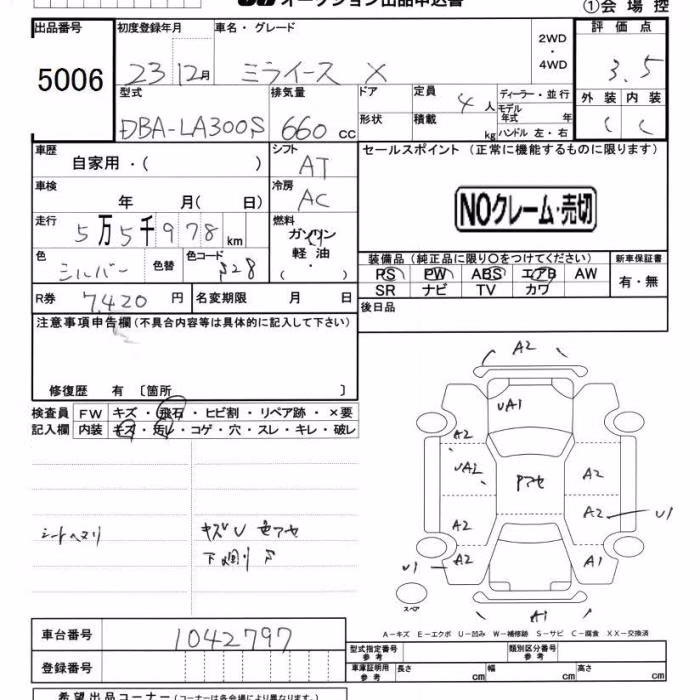 オークション出品申込書
①会場控
出品番号 5006
初度登録年月 23 12月
車名・グレード ミライース X
2WD・4WD
評価点 3.5
外装 C 内装 C
型式 DBA-LA300S
排気量 660 cc
ドア
形状
定員 4人
積載 kg
ディーラー・並行
モデル年式 年
ハンドル 左・右
車歴 自家用・( )
シフト AT
セールスポイント (正常に機能するものに限ります)
NOクレーム・売切
車検 年 月( 日)
冷房 AC
走行 5万5千978 km
燃料 ガソリン 軽油 ( ・ )
色 シルバー 色替 色コード S28
装備品 (純正品に限り○をつけてください)
新車保証書 有・無
PS PW ABS エアB AW
SR ナビ TV カワ
R券 7420 円 名変期限 月 日
後日品
注意事項申告欄 (不具合内容等は具体的に記入して下さい)
修復歴 有 〔箇所 〕
検査員記入欄
FW キズ・飛石・ヒビ割・リペア跡・×要
内装 キズ・汚レ・コゲ・穴・スレ・キレ・破レ
シートヘタリ
キズU 色アセ
下廻りS
A2
UA1
A2
UA2
PアセA2
A2
A2 U1
U1 A2
A1
A1
スペア
A-キズ E-エクボ U-凹み W-補修跡 S-サビ C-腐食 XX-交換済
車台番号 1042797
登録番号
型式指定番号 参考
類別区分番号 参考
車庫証明用 参考 長さ cm 幅 cm 高さ cm
希望出品コーナー (コーナーは各会場により異なります。)